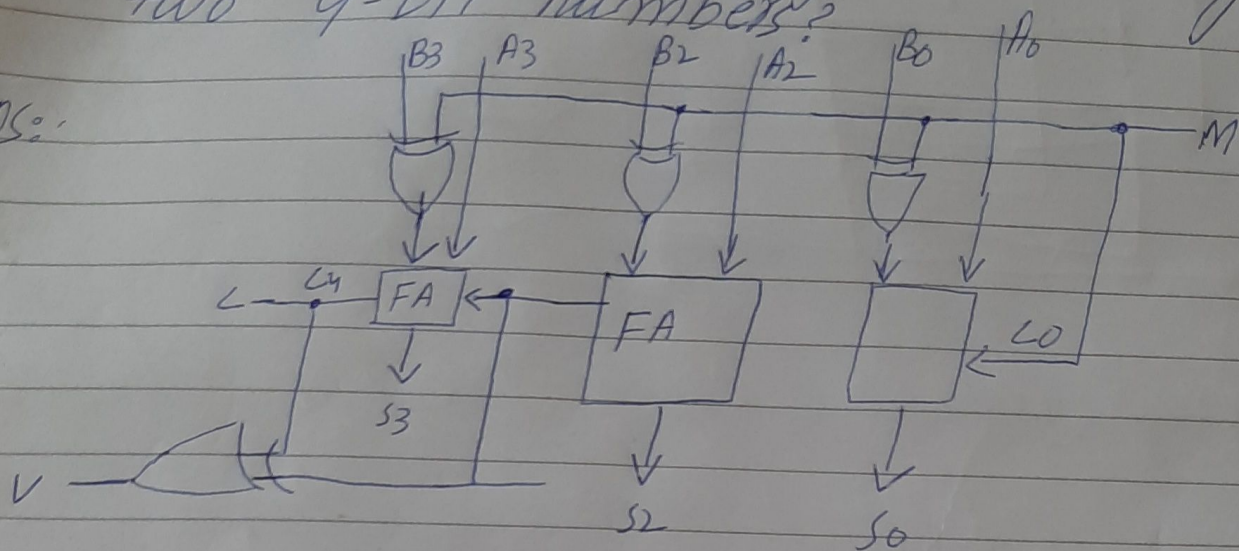 two 4-bit numbers?
B3 A3 B2 A2 B0 A0
M
C C4 FA FA C0
S3
V
S2 S0